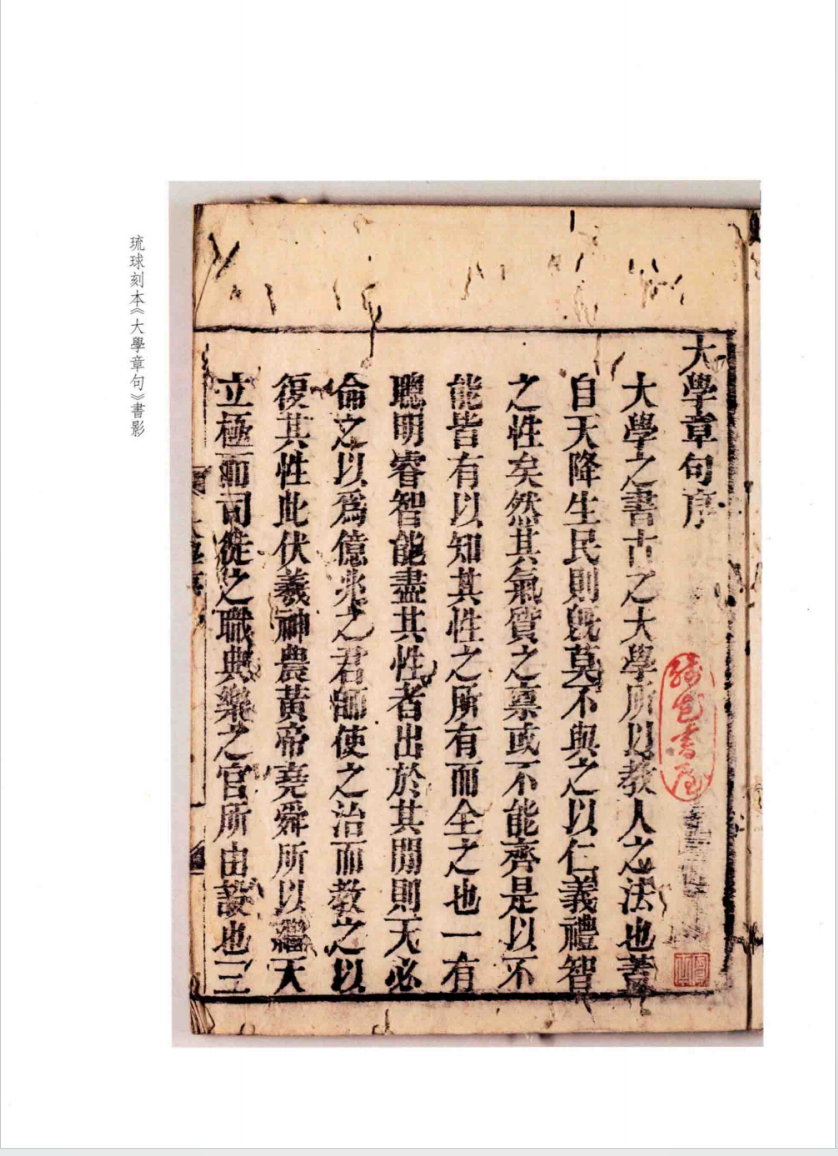 大學章句序
大學之書古之大學所以教人之法也蓋
自天降生民則旣莫不與之以仁義禮智
之性矣然其氣質之稟或不能齊是以不
能皆有以知其性之所有而全之也一有
聰明睿智能盡其性者出於其閒則天必
命之以爲億兆之君師使之治而教之以
復其性此伏羲神農黃帝堯舜所以繼天
立極而司徒之職典樂之官所由設也三
琉球刻本《大學章句》書影